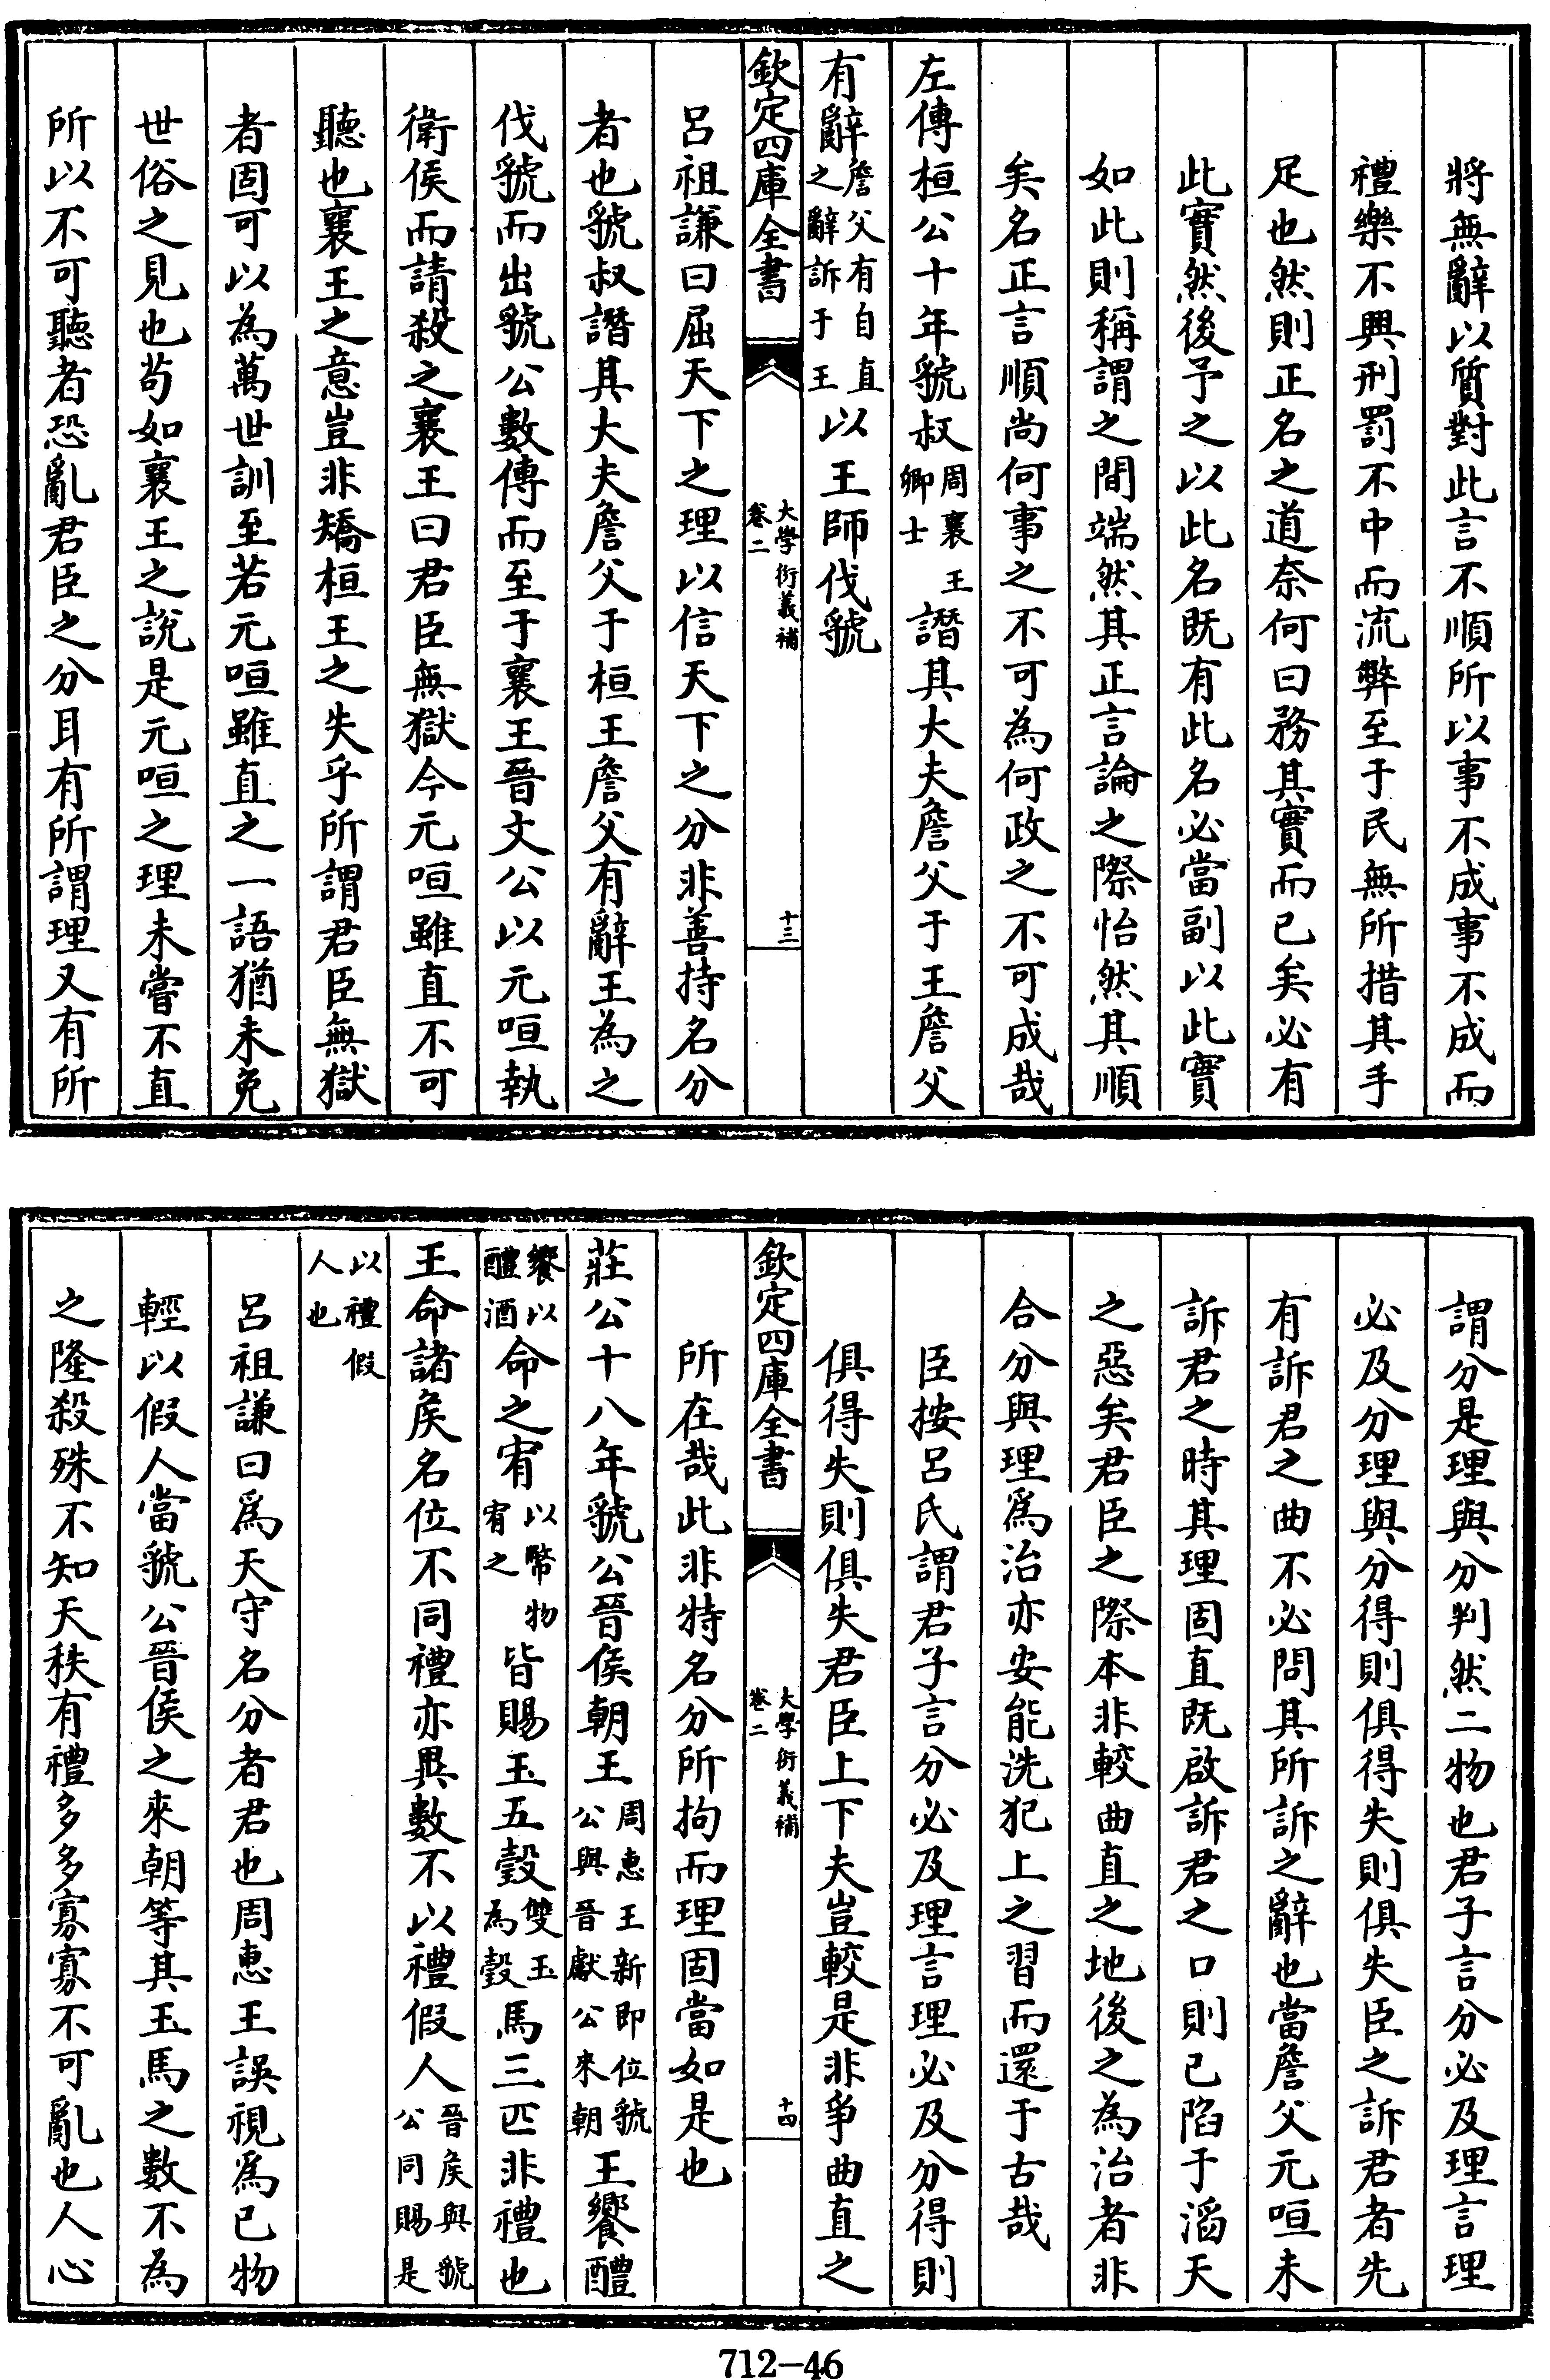 將無辭以質對此言不順所以事不成事不成而
禮樂不興刑罰不中而流弊至于民無所措其手
足也然則正名之道奈何曰務其實而已矣必有
此實然後予之以此名既有此名必當副以此實
如此則稱謂之間端然其正言論之際怡然其順
矣名正言順尚何事之不可為何政之不可成哉
左傳桓公十年虢叔周襄王卿士譖其大夫詹父于王詹父
有辭詹父有自直之辭訴于王以王師伐虢
欽定四庫全書 大學衍義補 卷二 十三
呂祖謙曰屈天下之理以信天下之分非善持名分
者也虢叔譖其大夫詹父于桓王詹父有辭王為之
伐虢而出虢公數傳而至于襄王晉文公以元咺執
衛侯而請殺之襄王曰君臣無獄今元咺雖直不可
聽也襄王之意豈非矯桓王之失乎所謂君臣無獄
者固可以為萬世訓至若元咺雖直之一語猶未免
世俗之見也苟如襄王之說是元咺之理未嘗不直
所以不可聽者恐亂君臣之分耳有所謂理又有所
謂分是理與分判然二物也君子言分必及理言理
必及分理與分得則俱得失則俱失臣之訴君者先
有訴君之曲不必問其所訴之辭也當詹父元咺未
訴君之時其理固直既啟訴君之口則已陷于滔天
之惡矣君臣之際本非較曲直之地後之為治者非
合分與理為治亦安能洗犯上之習而還于古哉
臣按呂氏謂君子言分必及理言理必及分得則
俱得失則俱失君臣上下夫豈較是非爭曲直之
欽定四庫全書 大學衍義補 卷二 十四
所在哉此非特名分所拘而理固當如是也
莊公十八年虢公晉侯朝王周惠王新即位虢公與晉獻公來朝王饗醴
饗以醴酒命之宥以幣物宥之皆賜玉五瑴雙玉為瑴馬三匹非禮也
王命諸侯名位不同禮亦異數不以禮假人晉侯與虢公同賜是
以禮假人也
呂祖謙曰為天守名分者君也周惠王誤視為已物
輕以假人當虢公晉侯之來朝等其玉馬之數不為
之隆殺殊不知天秩有禮多多寡寡不可亂也人心
712-46